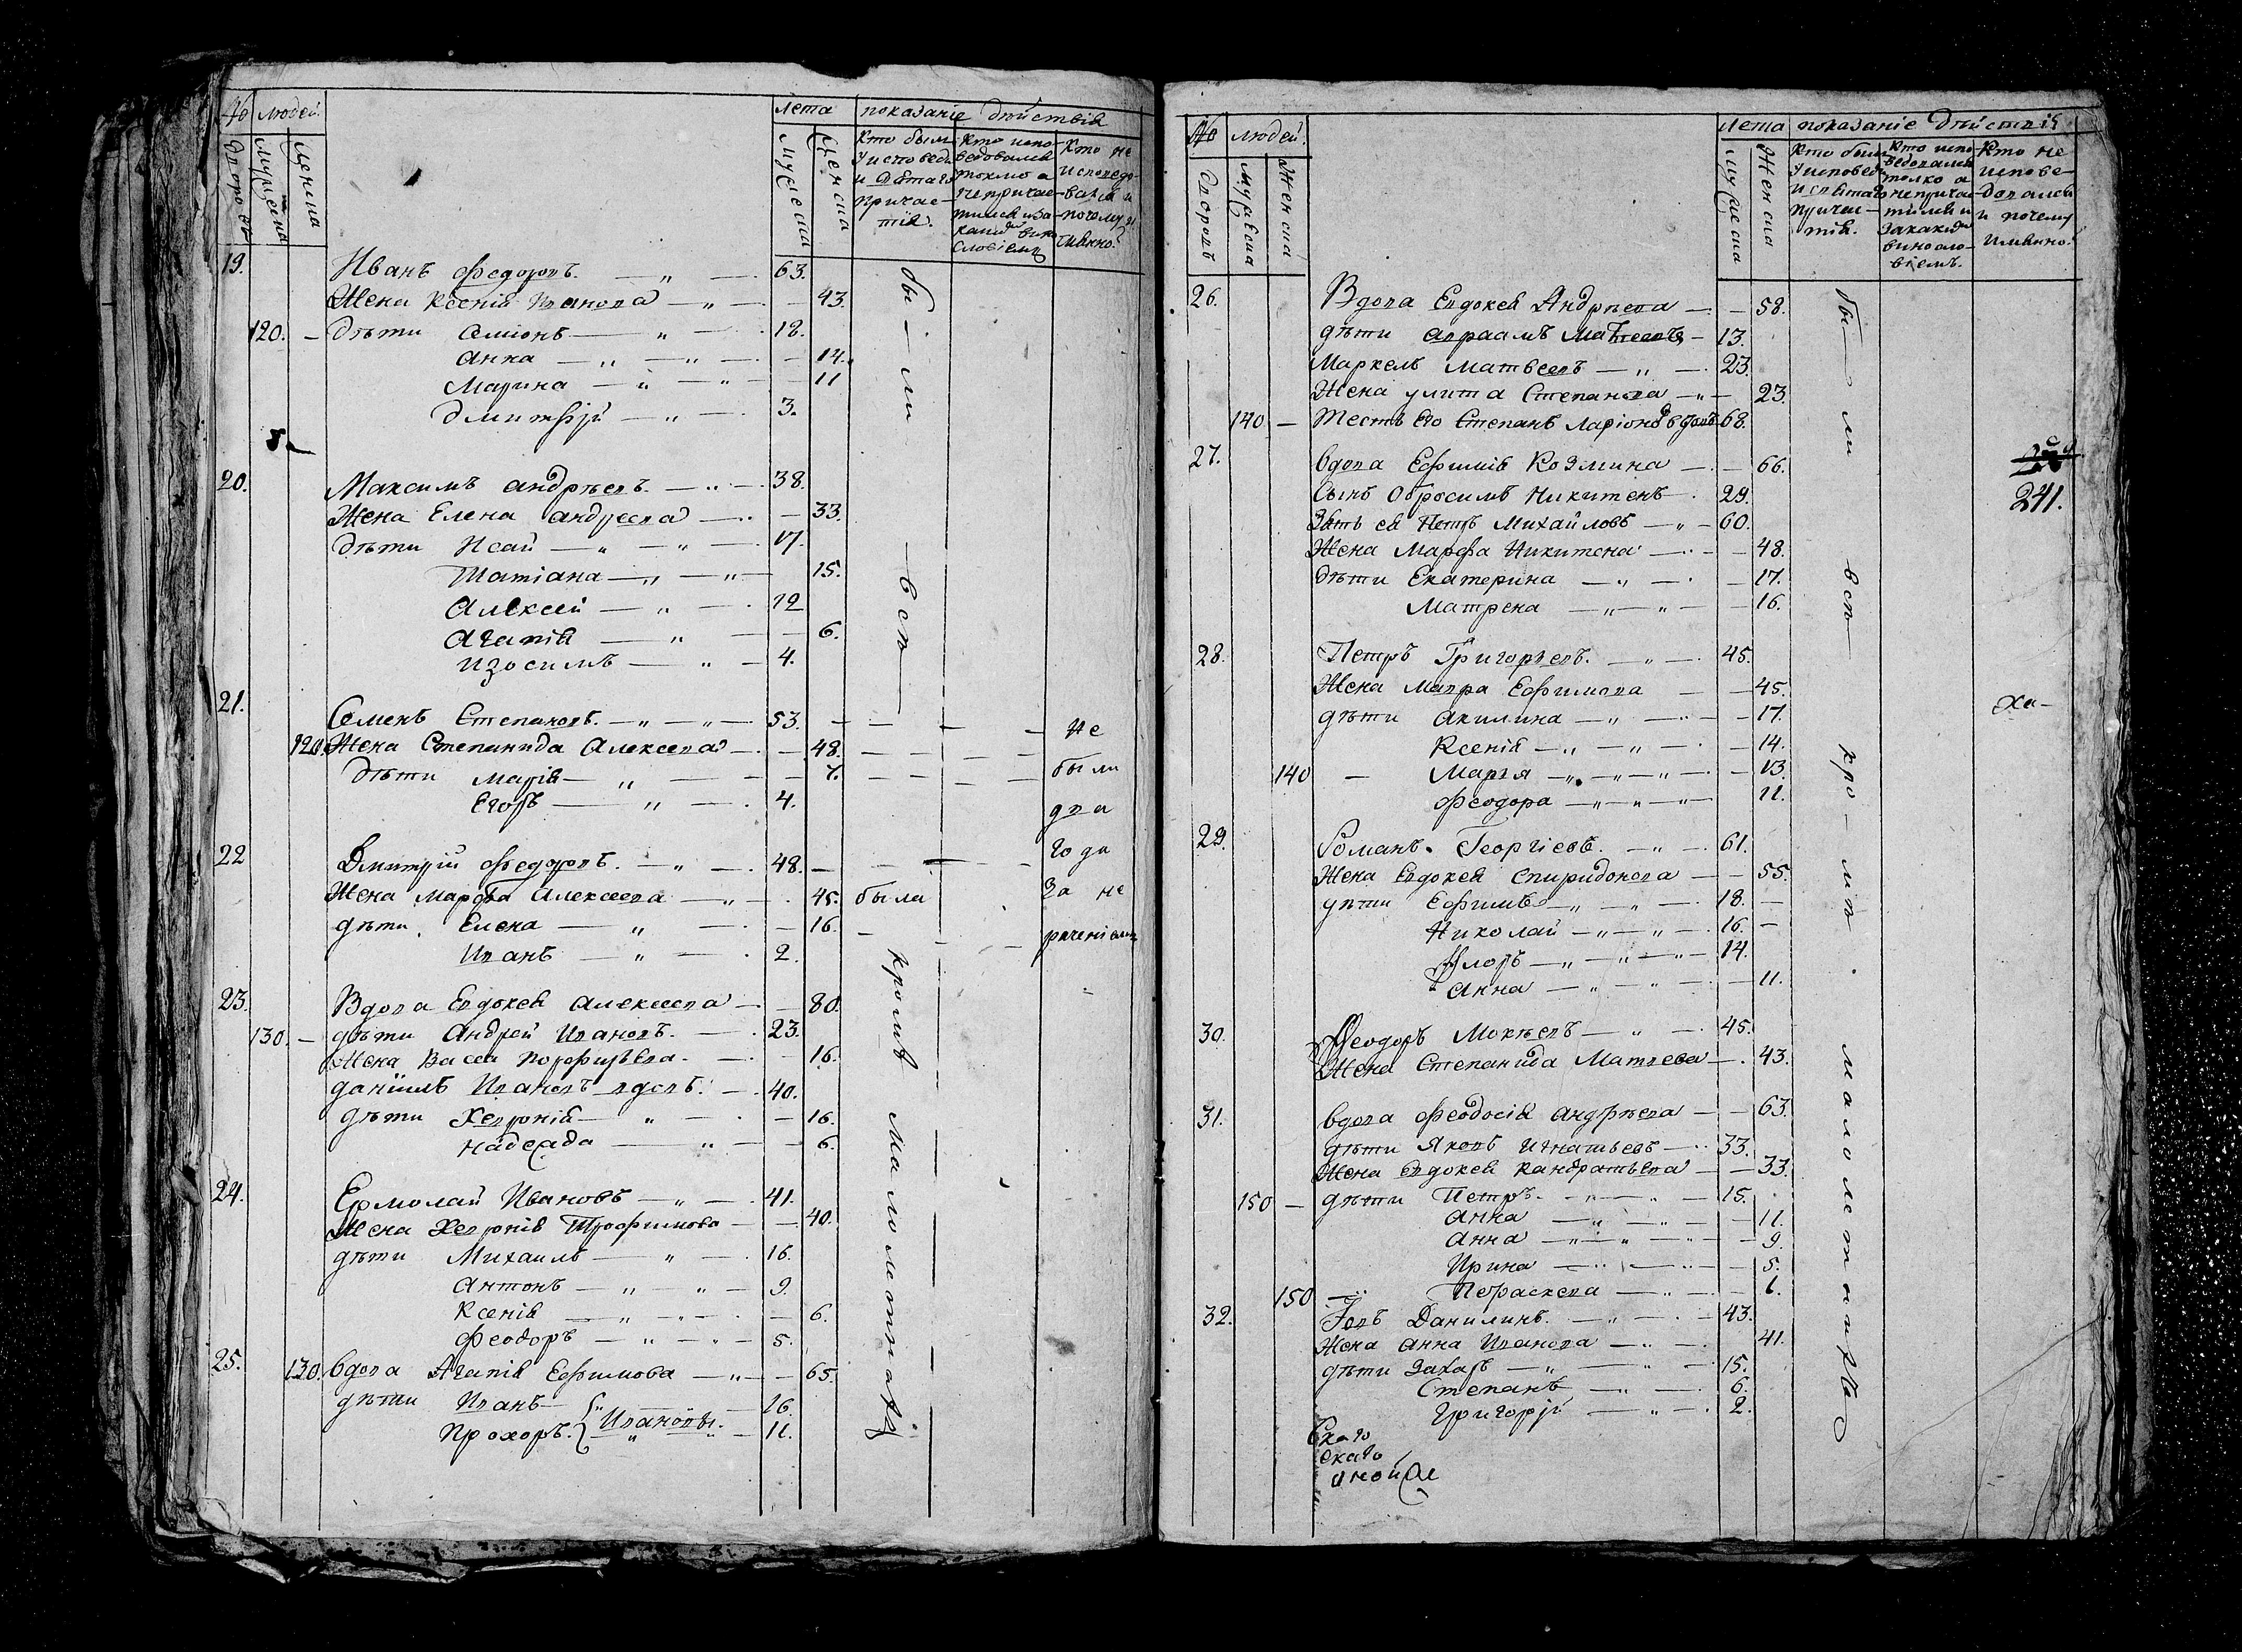 № людей. лета показанiе дѣйствiя
дворовъ мужеска женска мужеска женска
Кто были у исповеди и Святаго причастiя.
Кто исповедовался токмо а непричастился и за какимъ винословiемъ
Кто не исповедовался и почему именно.
19. Иванъ Федоровъ. — „ — 63.
Жена Ксенiя Иванова — „ — 43.
120. — дѣти Семionъ — „ — 18.
Анна — „ — „ — 14.
Марина — „ — „ — 11
Дмитрiй — „ — 3.
20. Максимъ Андрѣевъ. — „ — 38.
Жена Елена Андреева — 33.
дѣти Исай — „ — „ — 17.
Татiана — „ — „ — 15.
Алексей — „ — 12
Агапiя — „ — 6.
Изосимъ — „ — 4.
21. Семенъ Степановъ. — „ — „ — 53. не
120 Жена Степанида Алексеева — 48.
дѣти Марiя — „ — 7. были
Егоръ — „ — 4. два
22 Дмитрiй Федоровъ. — „ — 48. года
Жена Марфа Алексеева — „ — 45. были За не
дѣти Елена — „ — 16. раченiемъ
Иванъ — „ — 2.
23. Вдова Евдокея Алексеева — 80.
130. — дѣти Андрей Ивановъ. — 23.
Жена Васса Порфирьева. — 16.
Данiилъ Ивановъ вдовъ. — 40.
дѣти Хевронiя — „ — 16.
Надежда — „ — 6.
24. Ермолай Ивановъ — „ — 41.
Жена Хевронiя Трофимова — 40.
дѣти Михаилъ — „ — 16.
Антонъ — „ — „ — 9.
Ксенiя — „ — „ — 6.
Феодоръ — „ — „ — 5.
25. 130. Вдова Агапiя Ефимова — „ — 65.
дѣти Иванъ — 16.
Прохоръ. Ивановы. — 11.
были всѣ кромѣ малолетнихъ
№ людей. лета показанiе дѣйствiя
дворовъ мужеска женска мужеска женска
Кто были у исповеди и святаго причастiя.
Кто исповедовался толко а непричастился и за какимъ винословiемъ.
Кто не исповедовался и почему именно.
26. Вдова Евдокея Андрѣева — 58.
дѣти Авраамъ Матвеевъ — 13.
Маркелъ Матвеевъ — „ — 23.
Жена Улита Степанова — „ — 23.
140 — Тесть его Степанъ Ларiоновъ вдовъ 68.
27. Вдова Ефимiя Козмина — 66.
Сынъ Обросимъ Никитенъ — 29.
Зять ея Петръ Михайловъ — „ — 60.
241.
Жена Марфа Никитена — 48.
дѣти Екатерина — „ — 17.
Матрена — „ — „ — 16.
28. Петръ Григорьевъ. — „ — 45.
Жена Мавра Ефимова — 45.
дѣти Акилина — „ — 17. Ха-
Ксенiя — „ — „ — 14.
140 — Марья — „ — „ — „ — 13.
Феодора — „ — „ — „ 11.
29. Романъ. Георгiевъ. — „ — 61.
Жена Евдокея Спиридонова — 55.
дѣти Ефимъ — „ — „ — 18. —
Николай — „ — „ — 16. —
Флоръ — „ — „ — „ — 14.
Анна — „ — „ — 11.
30. Феодоръ Мокѣевъ — „ — 45.
Жена Степанида Матвева — 43.
31. Вдова Феодосiя Андрѣева — 63.
дѣти Яковъ Игнатьевъ — 33.
Жена Евдокея Кандратьева — 33.
150 — дѣти Петръ. — „ — „ — 15.
Анна — „ — „ — 11.
Анна — „ — „ — „ — 9.
Ирина — „ — „ — 5.
150 — Пораскева — „ — 1.
32. Iовъ Данилинъ. — „ — 43.
Жена Анна Иванова — „ — 41.
дѣти Захаръ — „ — „ — 15.
Степанъ — „ — 6.
Григорiй — „ — 2.
были всѣ кромѣ малолетнихъ